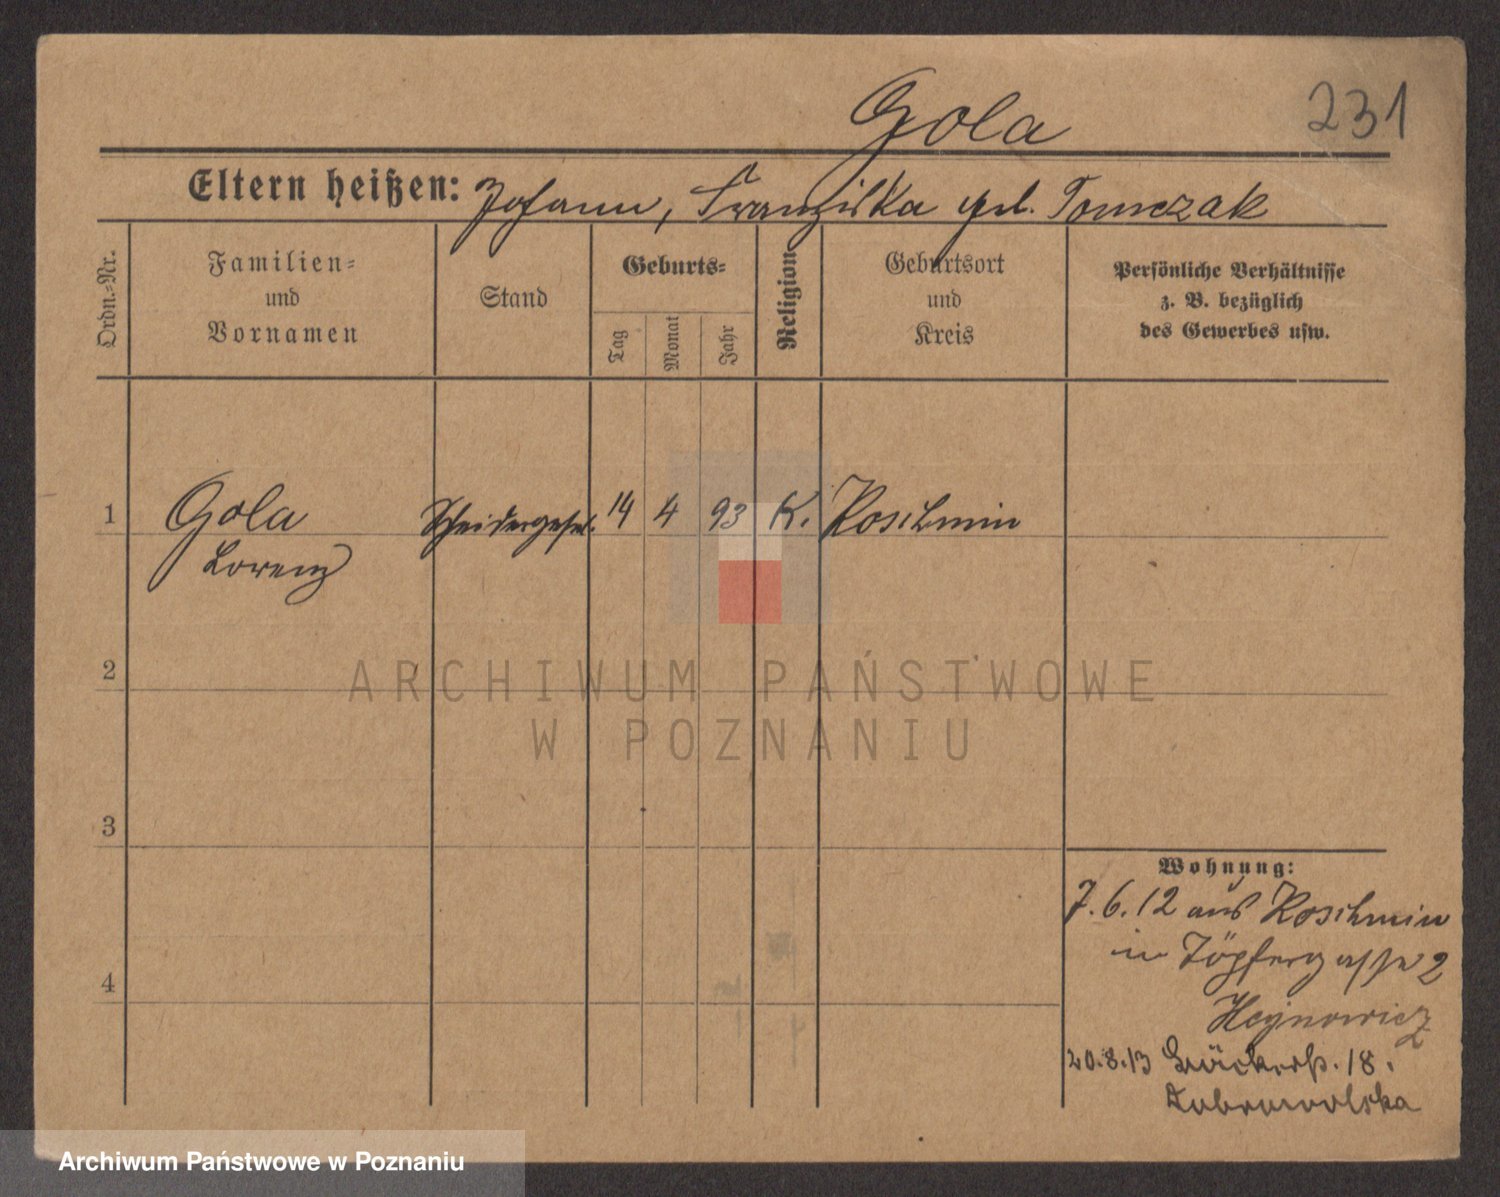 231
Gola
Eltern heißen: Johann, Franziska geb. Tomczak
Ordn.-Nr.
Familien-
und
Vornamen
Stand
Geburts-
Tag
Monat
Jahr
Religion
Geburtsort
und
Kreis
Persönliche Verhältnisse
z. B. bezüglich
des Gewerbes usw.
1 Gola 14 4 93 K. Koschmin
Lorenz
2
3
4
Wohnung:
7.6.12 aus Koschmin
in Töpfergasse 2
Hejnowicz
20.8.13 18.
Dubrowolska
ARCHIWUM PAŃSTWOWE
W POZNANIU
Archiwum Państwowe w Poznaniu